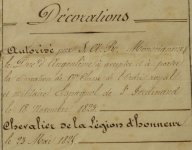 Décorations
Autorisé par S. A. R. Monseigneur
le Duc d'Angoulême à accepter et à porter
la décoration de Classe de l'Ordre royal
et militaire Espagnol de St Ferdinand
le 18 Novembre 1823.
Chevalier de la Légion d'honneur
le 23 Mai 1825